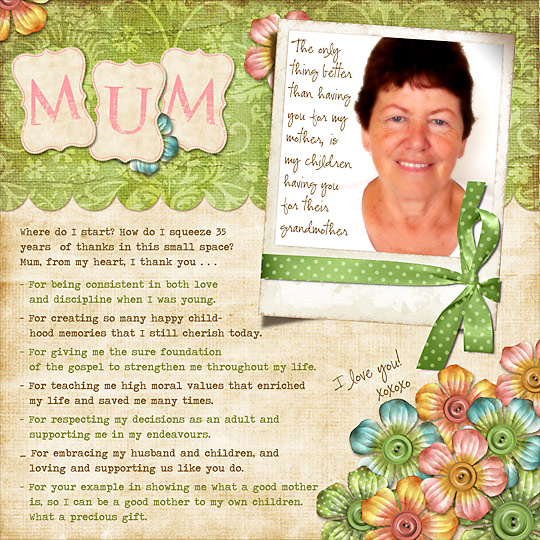 MUM
The only
thing better
than having
you for my
mother, is
my children
having you
for their
grandmother
Where do I start? How do I squeeze 35
years of thanks in this small space?
Mum, from my heart, I thank you . . .
- For being consistent in both love
and discipline when I was young.
- For creating so many happy child-
hood memories that I still cherish today.
- For giving me the sure foundation
of the gospel to strengthen me throughout my life.
- For teaching me high moral values that enriched
my life and saved me many times.
- For respecting my decisions as an adult and
supporting me in my endeavours.
_ For embracing my husband and children, and
loving and supporting us like you do.
- For your example in showing me what a good mother
is, so I can be a good mother to my own children.
What a precious gift.
I love you!
xoxoxo